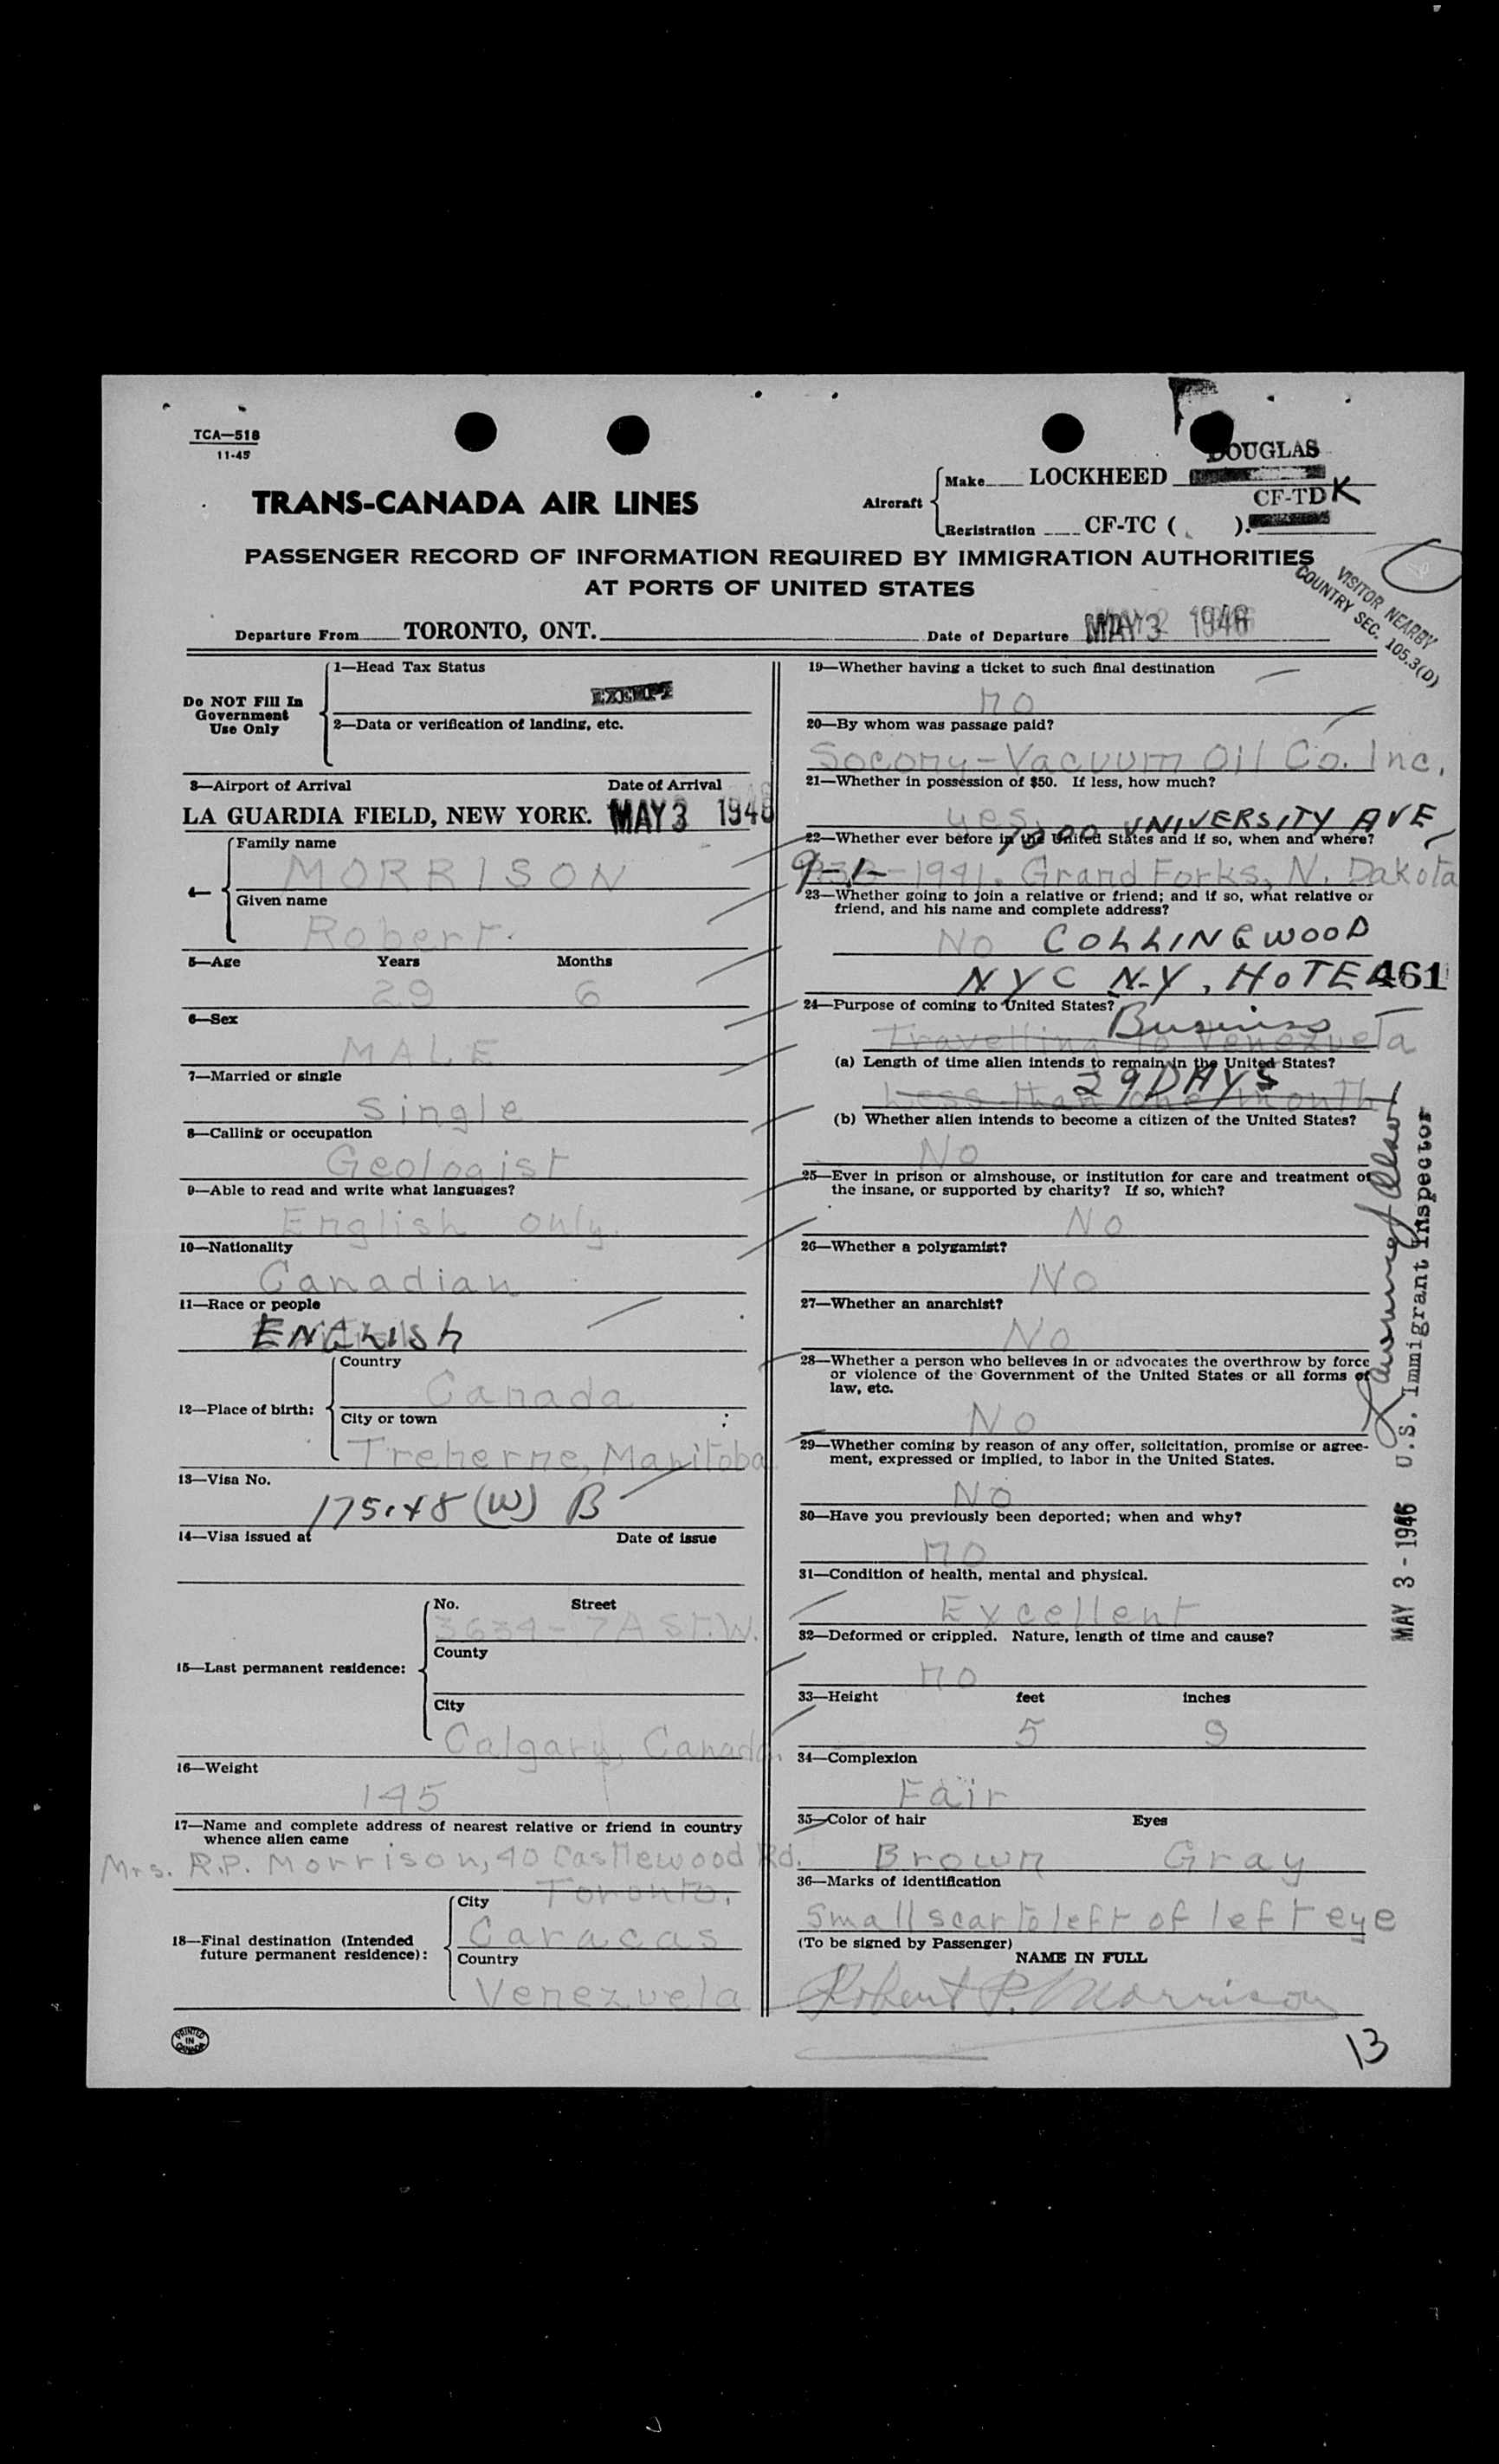 TCA—518
11-45
DOUGLAS
TRANS-CANADA AIR LINES
Aircraft
Make
LOCKHEED
CF-TDK
Registration
CF-TC ( ).
PASSENGER RECORD OF INFORMATION REQUIRED BY IMMIGRATION AUTHORITIES
AT PORTS OF UNITED STATES
VISITOR NEARBY
COUNTRY SEC. 105.3(D)
Departure From TORONTO, ONT.
Date of Departure MAY 3 1946
Do NOT Fill In
Government
Use Only
1—Head Tax Status
EXEMPT
2—Data or verification of landing, etc.
3—Airport of Arrival Date of Arrival
LA GUARDIA FIELD, NEW YORK. MAY 3 1946
4—
Family name
MORRISON
Given name
Robert.
5—Age Years Months
29 6
6—Sex
MALE
7—Married or single
Single
8—Calling or occupation
Geologist
9—Able to read and write what languages?
English only.
10—Nationality
Canadian
11—Race or people
ENGLISH
12—Place of birth:
Country
Canada
City or town
Treherne, Manitoba
13—Visa No.
175.48 (W) B
14—Visa issued at Date of issue
15—Last permanent residence:
No. Street
3634-7A ST. W.
County
City
Calgary, Canada.
16—Weight
145
17—Name and complete address of nearest relative or friend in country
whence alien came
Mrs. R.P. Morrison, 40 Castlewood Rd.
Toronto.
18—Final destination (Intended
future permanent residence):
City
Caracas
Country
Venezuela
PRINTED
IN
CANADA
19—Whether having a ticket to such final destination
no
20—By whom was passage paid?
Socony-Vacuum Oil Co. Inc.
21—Whether in possession of $50. If less, how much?
yes.
UNIVERSITY AVE
22—Whether ever before in the United States and if so, when and where?
-1941. Grand Forks, N. Dakota
23—Whether going to join a relative or friend; and if so, what relative or
friend, and his name and complete address?
No COLLINGWOOD
NYC N.Y, HOTEL 461
24—Purpose of coming to United States?
Business
Travelling to Venezuela
(a) Length of time alien intends to remain in the United States?
29 DAYS
Less than one month
(b) Whether alien intends to become a citizen of the United States?
No
25—Ever in prison or almshouse, or institution for care and treatment of
the insane, or supported by charity? If so, which?
No
26—Whether a polygamist?
No
27—Whether an anarchist?
No
28—Whether a person who believes in or advocates the overthrow by force
or violence of the Government of the United States or all forms of
law, etc.
No
29—Whether coming by reason of any offer, solicitation, promise or agree-
ment, expressed or implied, to labor in the United States.
No
30—Have you previously been deported; when and why?
no
31—Condition of health, mental and physical.
Excellent
32—Deformed or crippled. Nature, length of time and cause?
no
33—Height feet inches
5 9
34—Complexion
Fair
35—Color of hair Eyes
Brown Gray
36—Marks of identification
Small scar to left of left eye
(To be signed by Passenger)
NAME IN FULL
Robert P. Morrison
13
MAY 3 - 1946 U.S. Immigrant Inspector